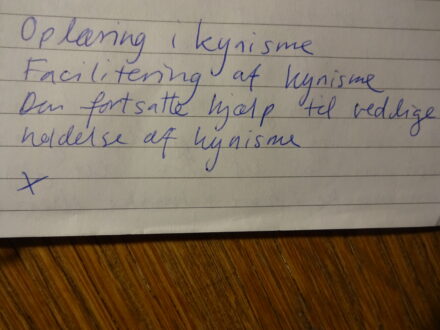 Oplæring i kynisme
Facilitering af kynisme
Den fortsatte hjælp til veddige
holdelse af kynisme
X